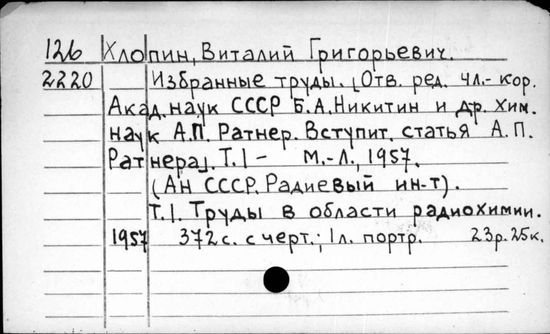 126 Хлопин, Виталий Григорьевич.
2220 Избранные труды. [Отв. ред. чл.-кор.
Акад. наук СССР Б.А. Никитин и др. хим.
наук А.П. Ратнер. Вступит. статья А.П.
Ратнера]. Т.1 – М.-Л., 1957.
(Ан СССР. Радиевый ин-т).
Т.1. Труды в области радиохимии.
1957 372 с. с черт.; 1л. портр. 23р. 25к.